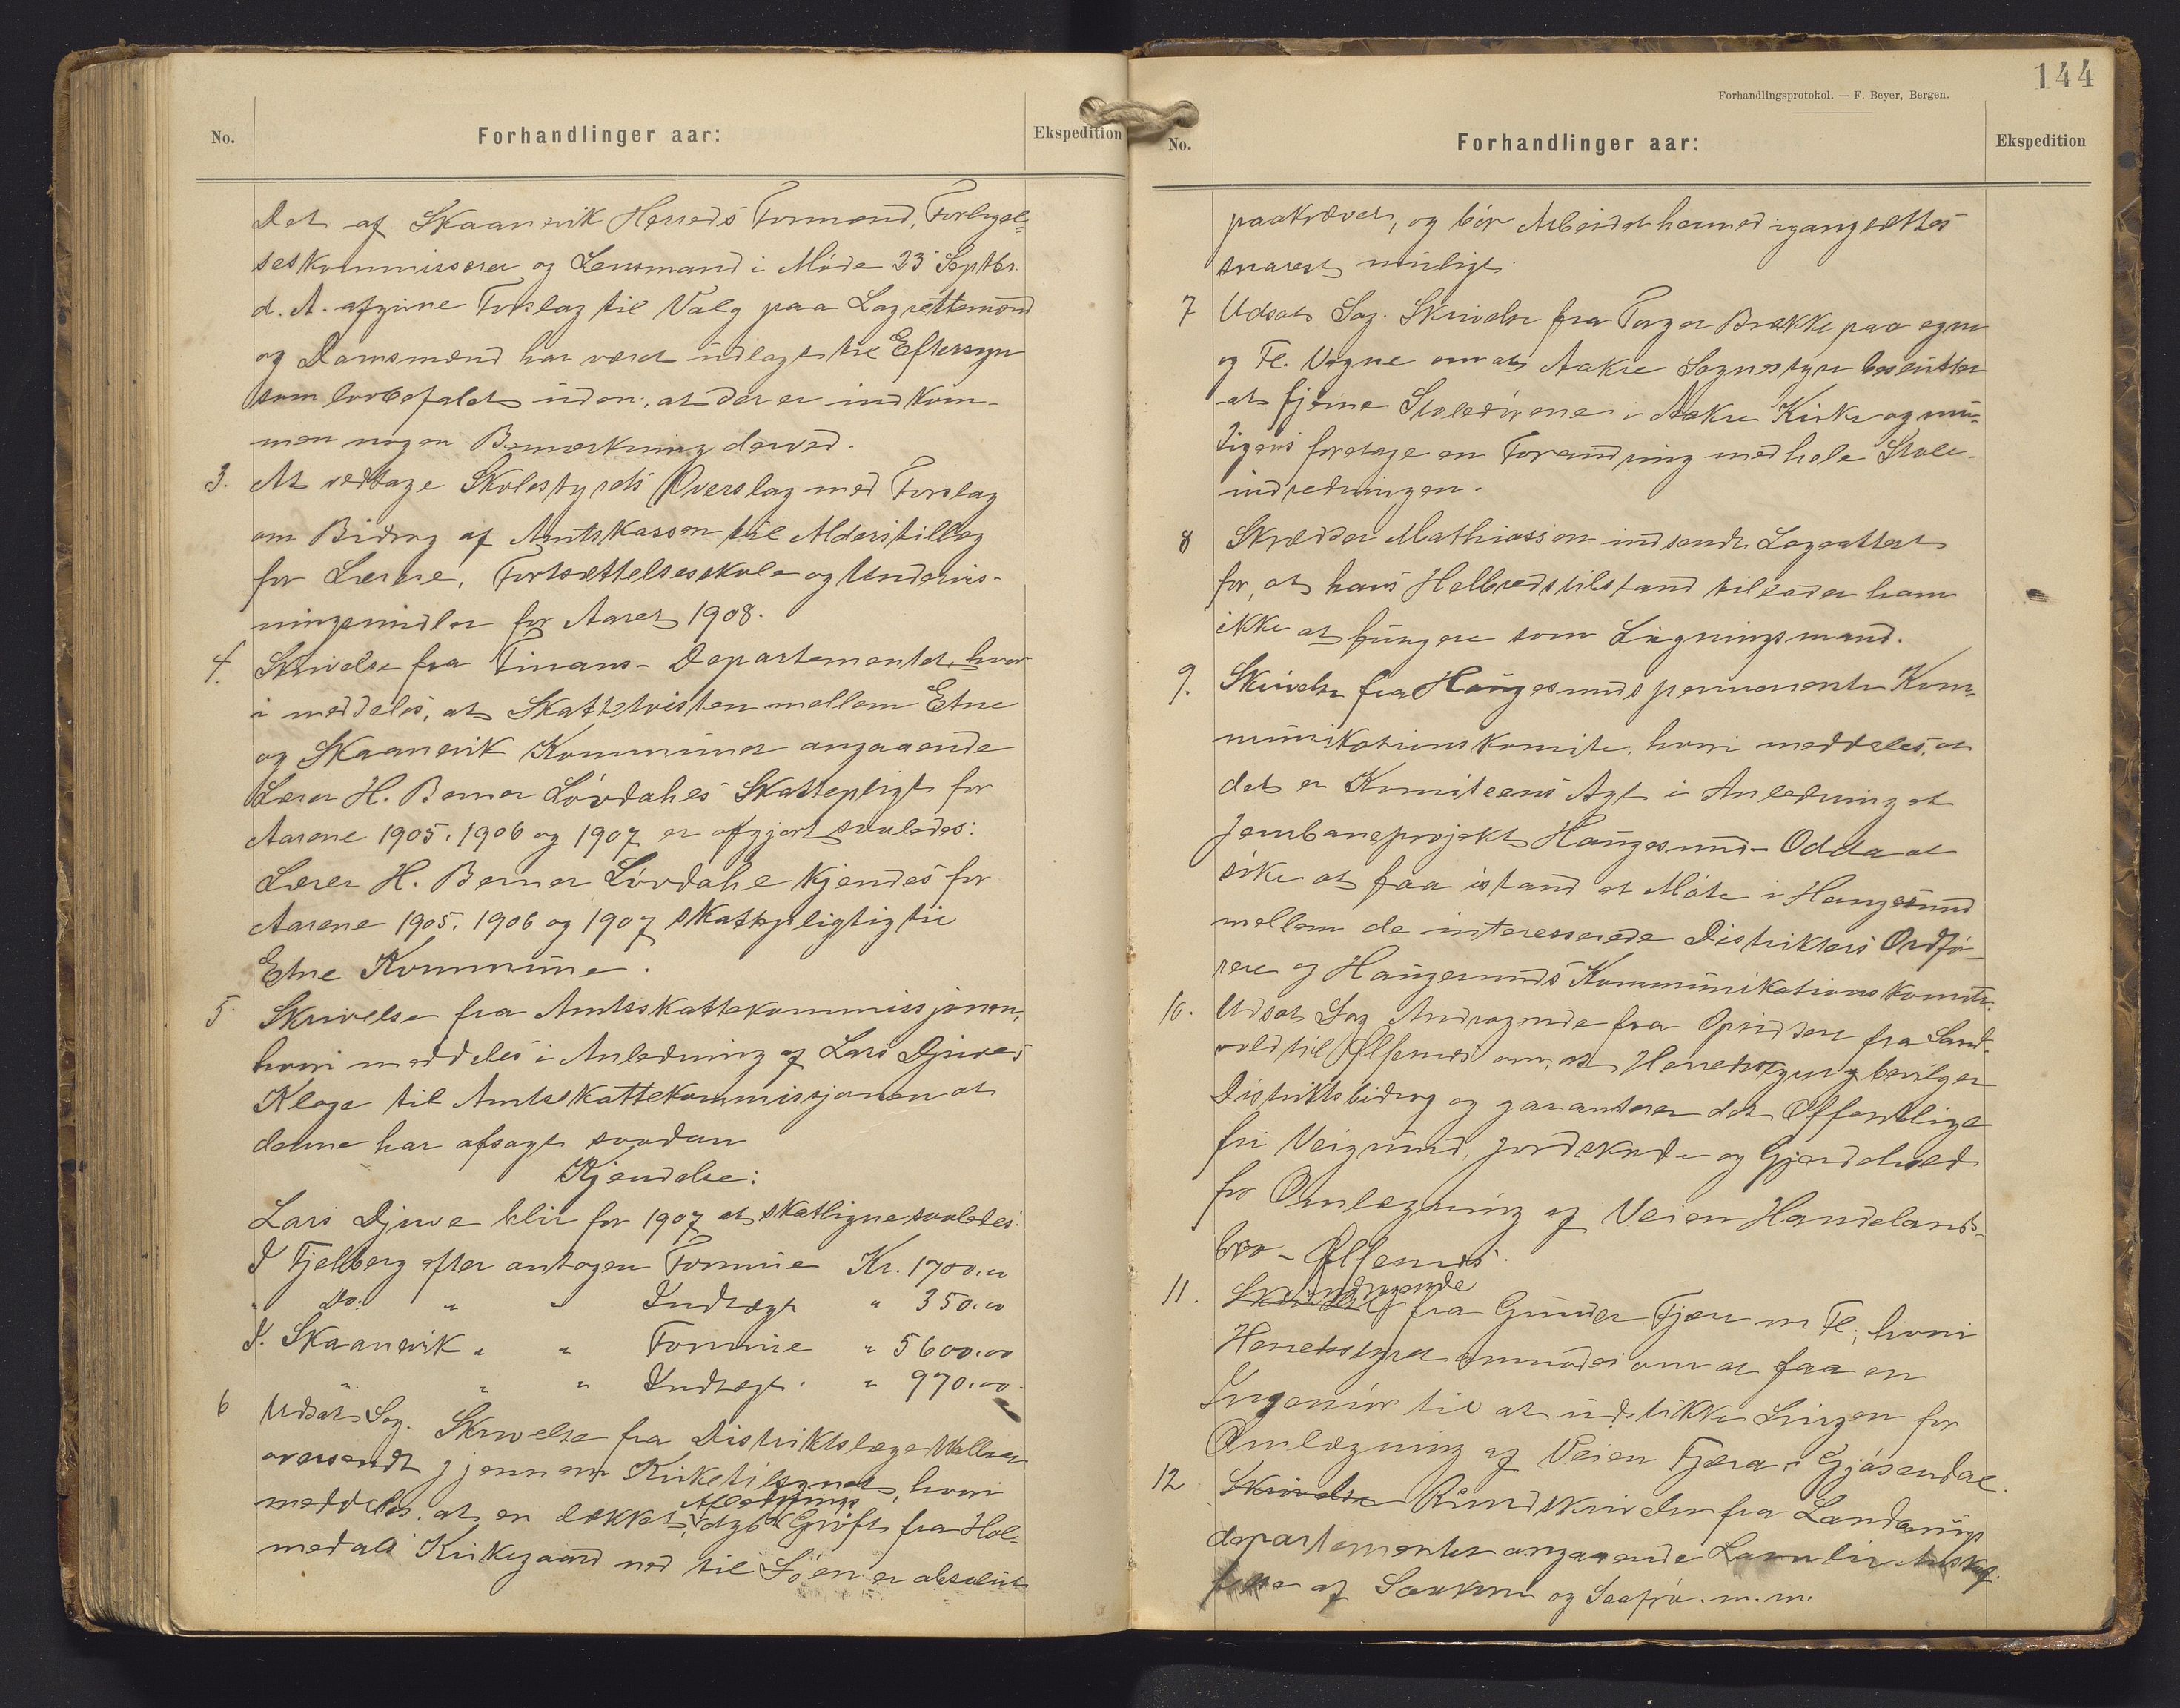 No.
Forhandlinger aar:
Ekspedition
Det af Skaanevik Herreds Formand, Forligel-
seskommissærer og Lensmand i Møde 23 Septbr.
d. A. afgivne Forslag til Valg paa Lagrettemænd
og Domsmænd har været udlagt til Eftersyn
som lovbefalet uden, at der er indkom-
men nogen Bemærkning derved.
3. At vedtage Skolestyrets Overslag med Forslag
om Bidrag af Amtskassen til Alderstillæg
for Lærere, Fortsættelsesskole og Undervis-
ningsmidler for Aaret 1908.
4. Skrivelse fra Finans-Departementet, hvor
i meddeles, at Skattetvisten mellem Etne
og Skaanevik Kommuner angaaende
Lærer H. Berner Løvdahls Skattepligt for
Aarene 1905, 1906 og 1907 er afgjort saaledes:
Lærer H. Berner Løvdahl kjendes for
Aarene 1905, 1906 og 1907 skattepligtig til
Etne Kommune.
5. Skrivelse fra Amtsskattekommissjonen,
hvori meddeles i Anledning af Lars Djuves
Klage til Amtsskattekommissjonen at
denne har afsagt saadan
Kjendelse:
Lars Djuve blir for 1907 at skatligne saaledes:
I Fjelberg efter antagen Formue Kr. 1700.00
" Do. " " Indtægt " 350.00
I. Skaanevik " " Formue " 5600.00
" " " Indtægt. " 970.00.
6 Udsat Sag. Skrivelse fra Distriktslæge
oversendt gjennem Kirketilsynet, hvori
meddeles, at en lukket Afledningsgrøft fra Hol-
medals Kirkegaard ned til Søen er absolut
144
Forhandlingsprotokol. — F. Beyer, Bergen.
No.
Forhandlinger aar:
Ekspedition
paakrævet, og bør Arbeidet hermed igangsættes
snarest muligt.
7 Udsat Sag. Skrivelse fra Torger Brekke paa egne
og Fl. Vegne om at Aakre Sognestyre beslutter
at fjerne Stoledørene i Aakre Kirke og mu-
ligens foretage en Forandring med hele Stole-
indredningen.
8 Skrædder Mathiassen indsendt Lægeattest
for, at hans Helbredstilstand tillader ham
ikke at fungere som Ligningsmand.
9. Skrivelse fra Haugesunds permanente Kom-
munikationskomite, hvori meddeles, at
det er Komiteens Agt i Anledning at
Jernbaneprojekt Haugesund-Odda at
søke at faa istand et Møte i Haugesund
mellem de interesserede Distrikters Ordfø-
rere og Haugesunds Kommunikationskomite.
10. Udsat Sag Andragende fra Opsiddere fra Sand-
vold til Ølfernes om, at Herredsstyret bevilger
Distriktsbidrag og garanterer det Offentlige
fri Veigrund, Jordskade og Gjerdehold
for Omlægning af Veien Handelands-
bro-Ølfernes.
11. Skrivelse Andragende fra Gunder Fjære m Fl., hvori
Herredsstyret anmodes om at faa en
Ingeniør til at udstikke Linjen for
Omlægning af Veien Fjæra - Gjøsendal.
12 Skrivelse Rundskrivelse fra Landbrugs
departementet angaaende
af Såkorn og Saafrø. m. m.